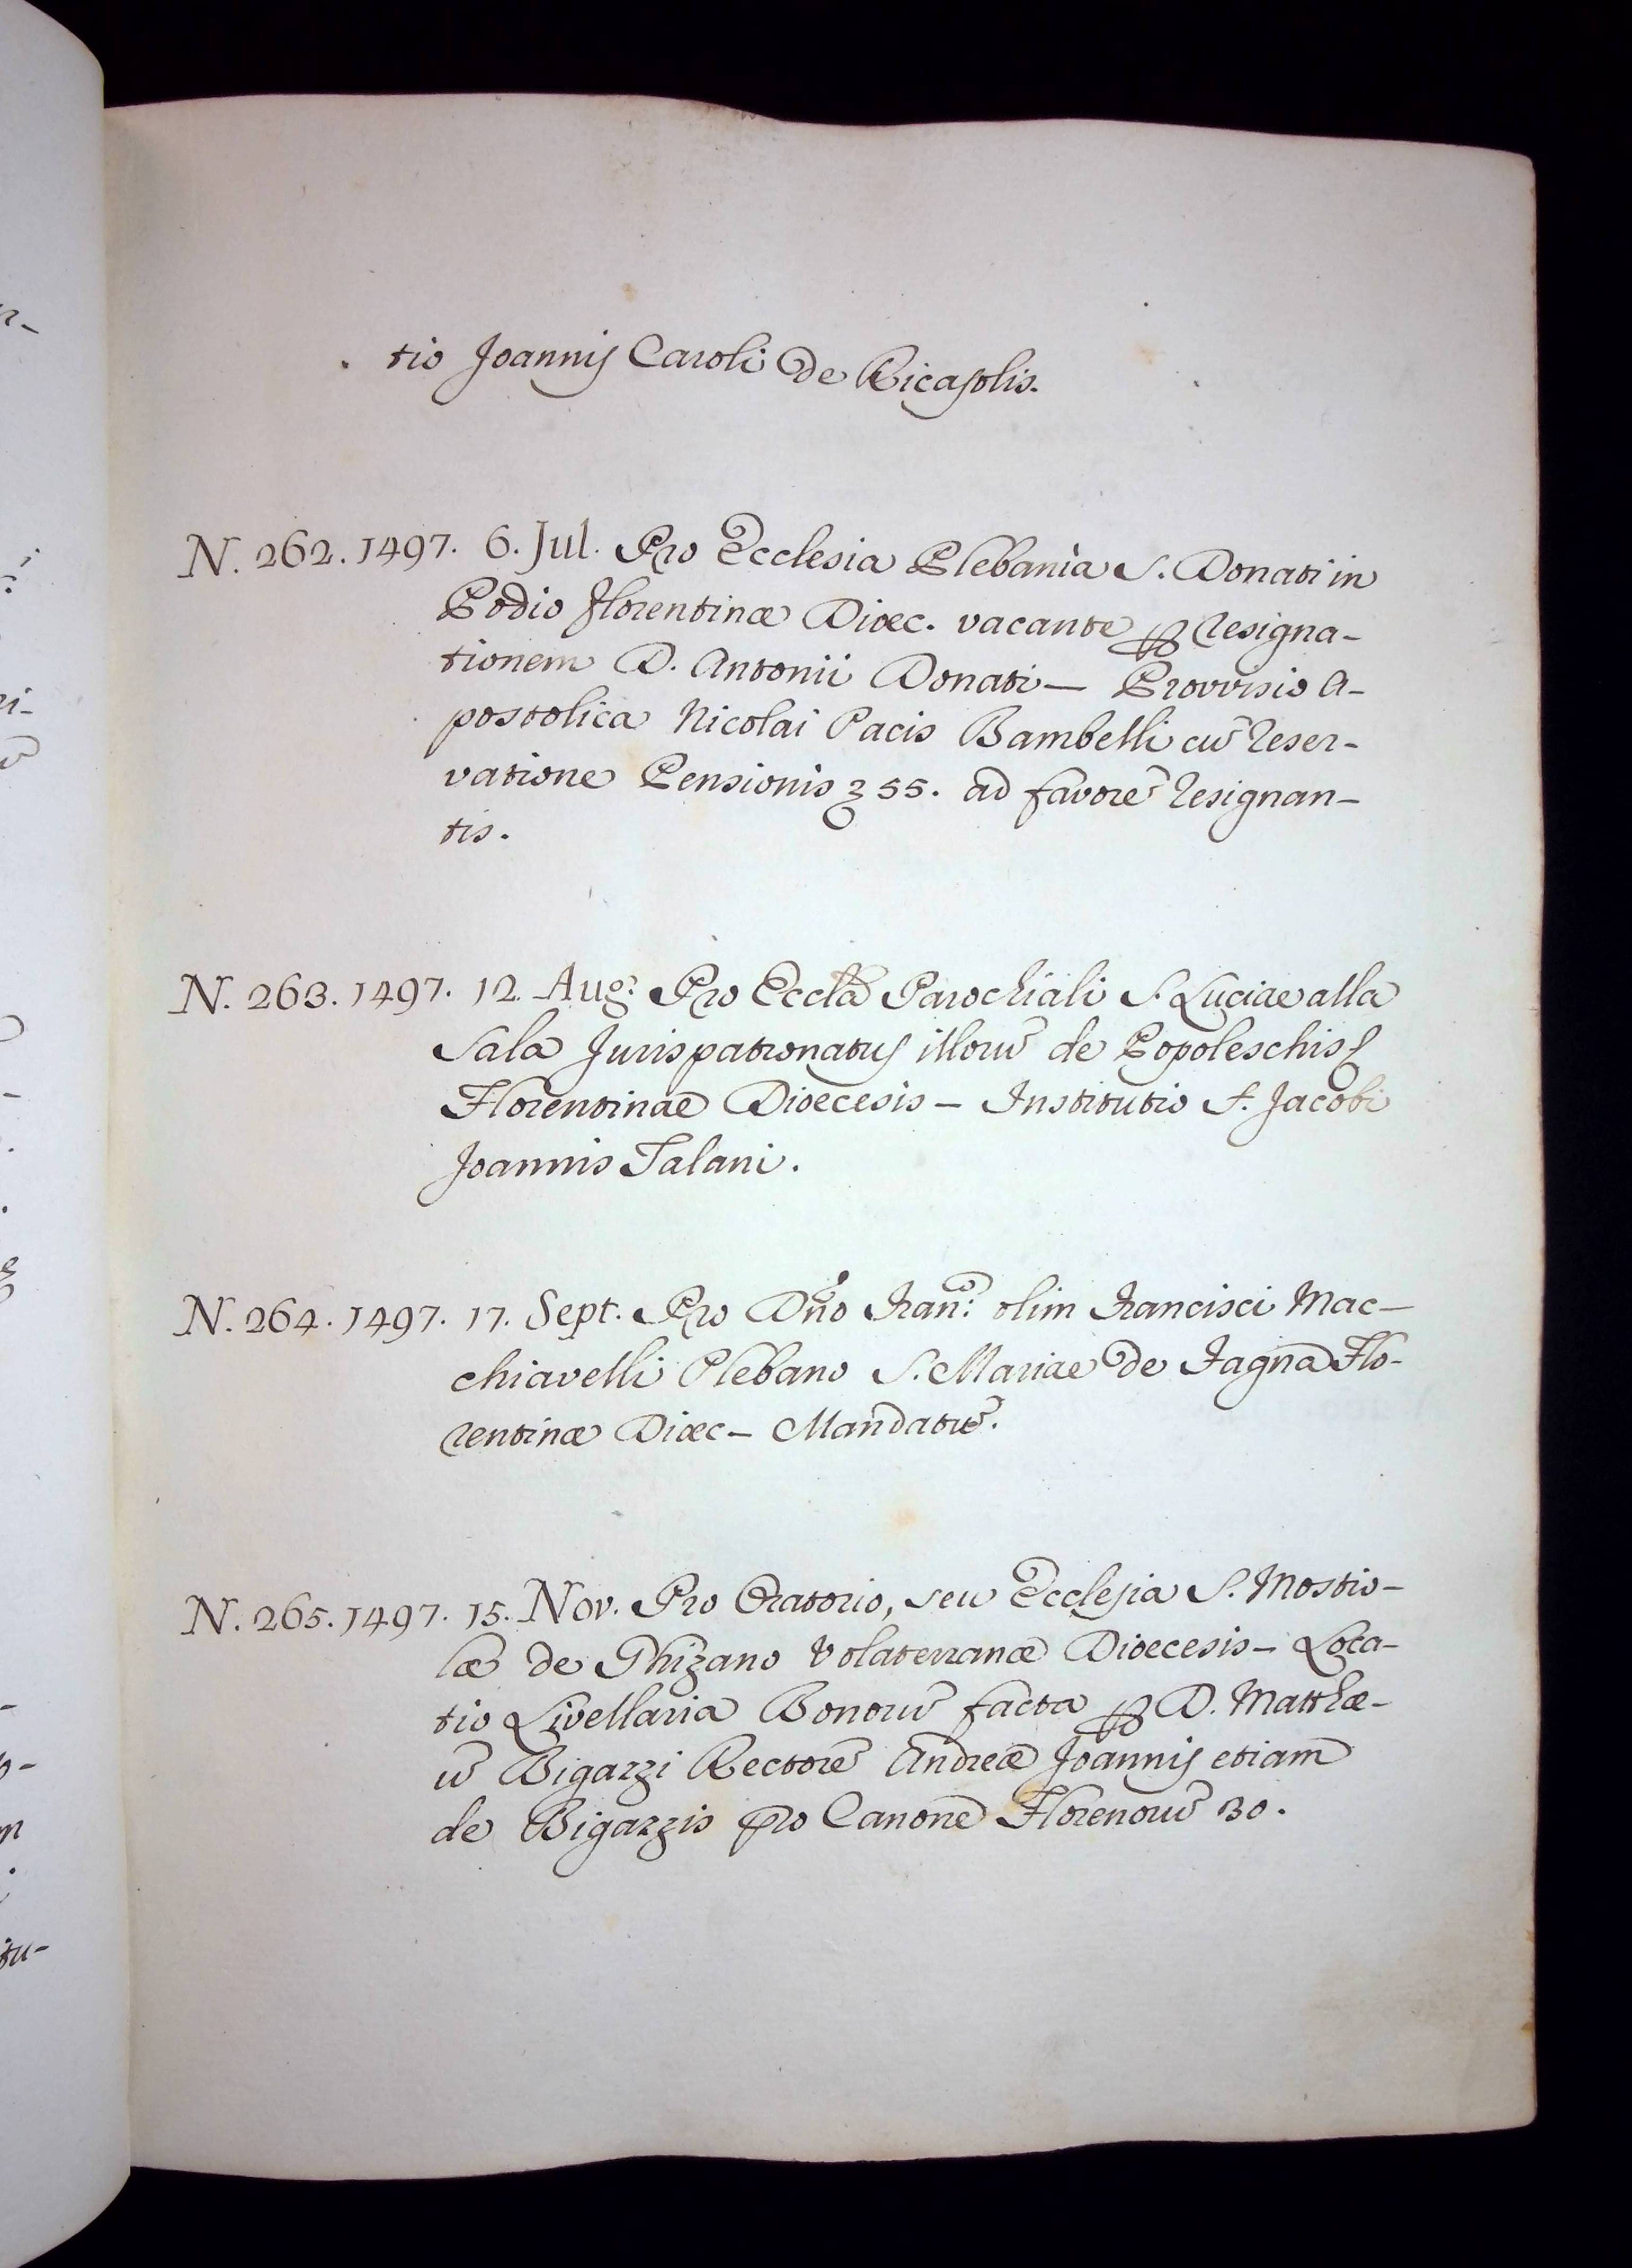 tio Joannis Caroli de Ricasolis.
N. 262. 1497. 6. Jul. Pro Ecclesia Plebania S. Donati in
Podio Florentinæ Diœc. vacante ꝑ resigna-
tionem D. Antonii Donati — Provvisio A-
postolica Nicolai Pacis Bambelli cũ reser-
vatione Pensionis 55. ad favorẽ resignan-
tis.
N. 263. 1497. 12. Aug. Pro Eccla Parochiali S. Luciae alla
Sala Jurispatronatus illorũ de Popoleschis
Florentinae Dioecesis — Institutio S. Jacobi
Joannis Talani.
N. 264. 1497. 17. Sept. Pro Dño Fran: olim Francisci Mac-
chiavelli Plebano S. Mariae de Fagna Flo-
rentinæ Diœc — Mandatũ.
N. 265. 1497. 15. Nov. Pro Oratorio, seu Ecclesia S. Mostio-
læ de Ghizano Volaterranæ Dioecesis — Loca-
tio Livellaria Bonorũ facta ꝑ D. Matthæ-
ũ Bigazzi Rectorẽ Andreæ Joannis etiam
de Bigazzis pro Canone Florenorũ 30.
i-
tu-